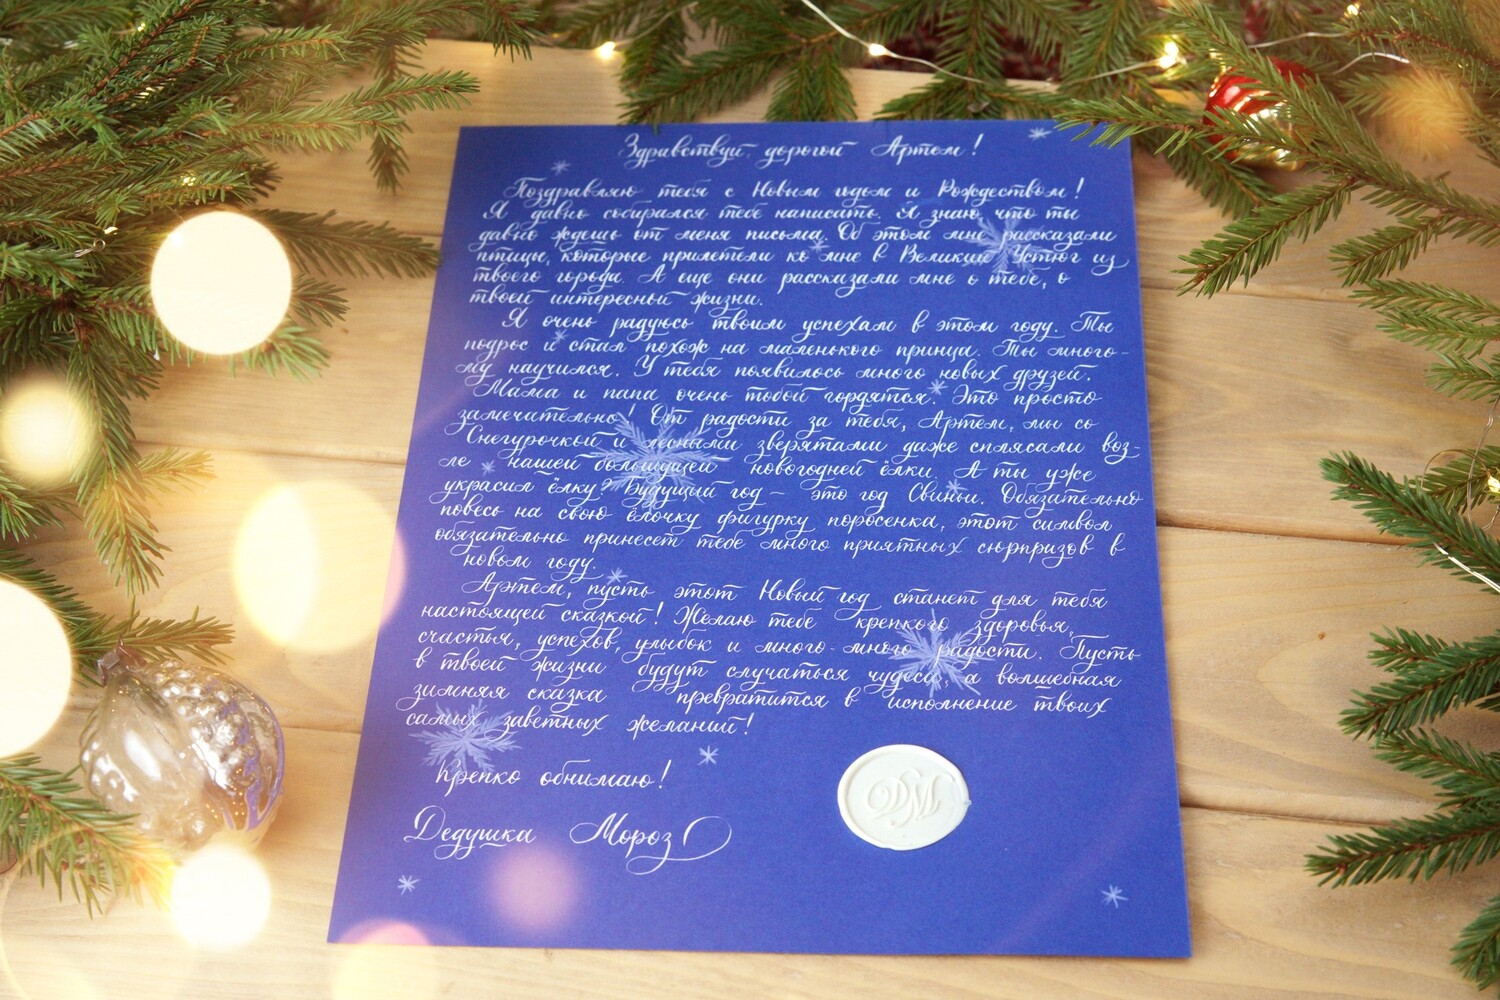 Здравствуй, дорогой Артем!
Поздравляю тебя с Новым годом и Рождеством!
Я давно собирался тебе написать. Я знаю, что ты
давно ждешь от меня письма. Об этом мне рассказали
птицы, которые прилетели ко мне в Великий Устюг из
твоего города. А еще они рассказали мне о тебе, о
твоей интересной жизни.
Я очень радуюсь твоим успехам в этом году. Ты
подрос и стал похож на маленького принца. Ты много-
му научился. У тебя появилось много новых друзей.
Мама и папа очень тобой гордятся. Это просто
замечательно! От радости за тебя, Артем, мы со
Снегурочкой и лесными зверятами даже сплясали воз-
ле нашей большущей новогодней ёлки. А ты уже
украсил ёлку? Будущий год - это год Свиньи. Обязательно
повесь на свою ёлочку фигурку поросенка, этот символ
обязательно принесет тебе много приятных сюрпризов в
новом году.
Артем, пусть этот Новый год станет для тебя
настоящей сказкой! Желаю тебе крепкого здоровья,
счастья, успехов, улыбок и много-много радости. Пусть
в твоей жизни будут случаться чудеса, а волшебная
зимняя сказка превратится в исполнение твоих
самых заветных желаний!
Крепко обнимаю!
Дедушка Мороз
DM